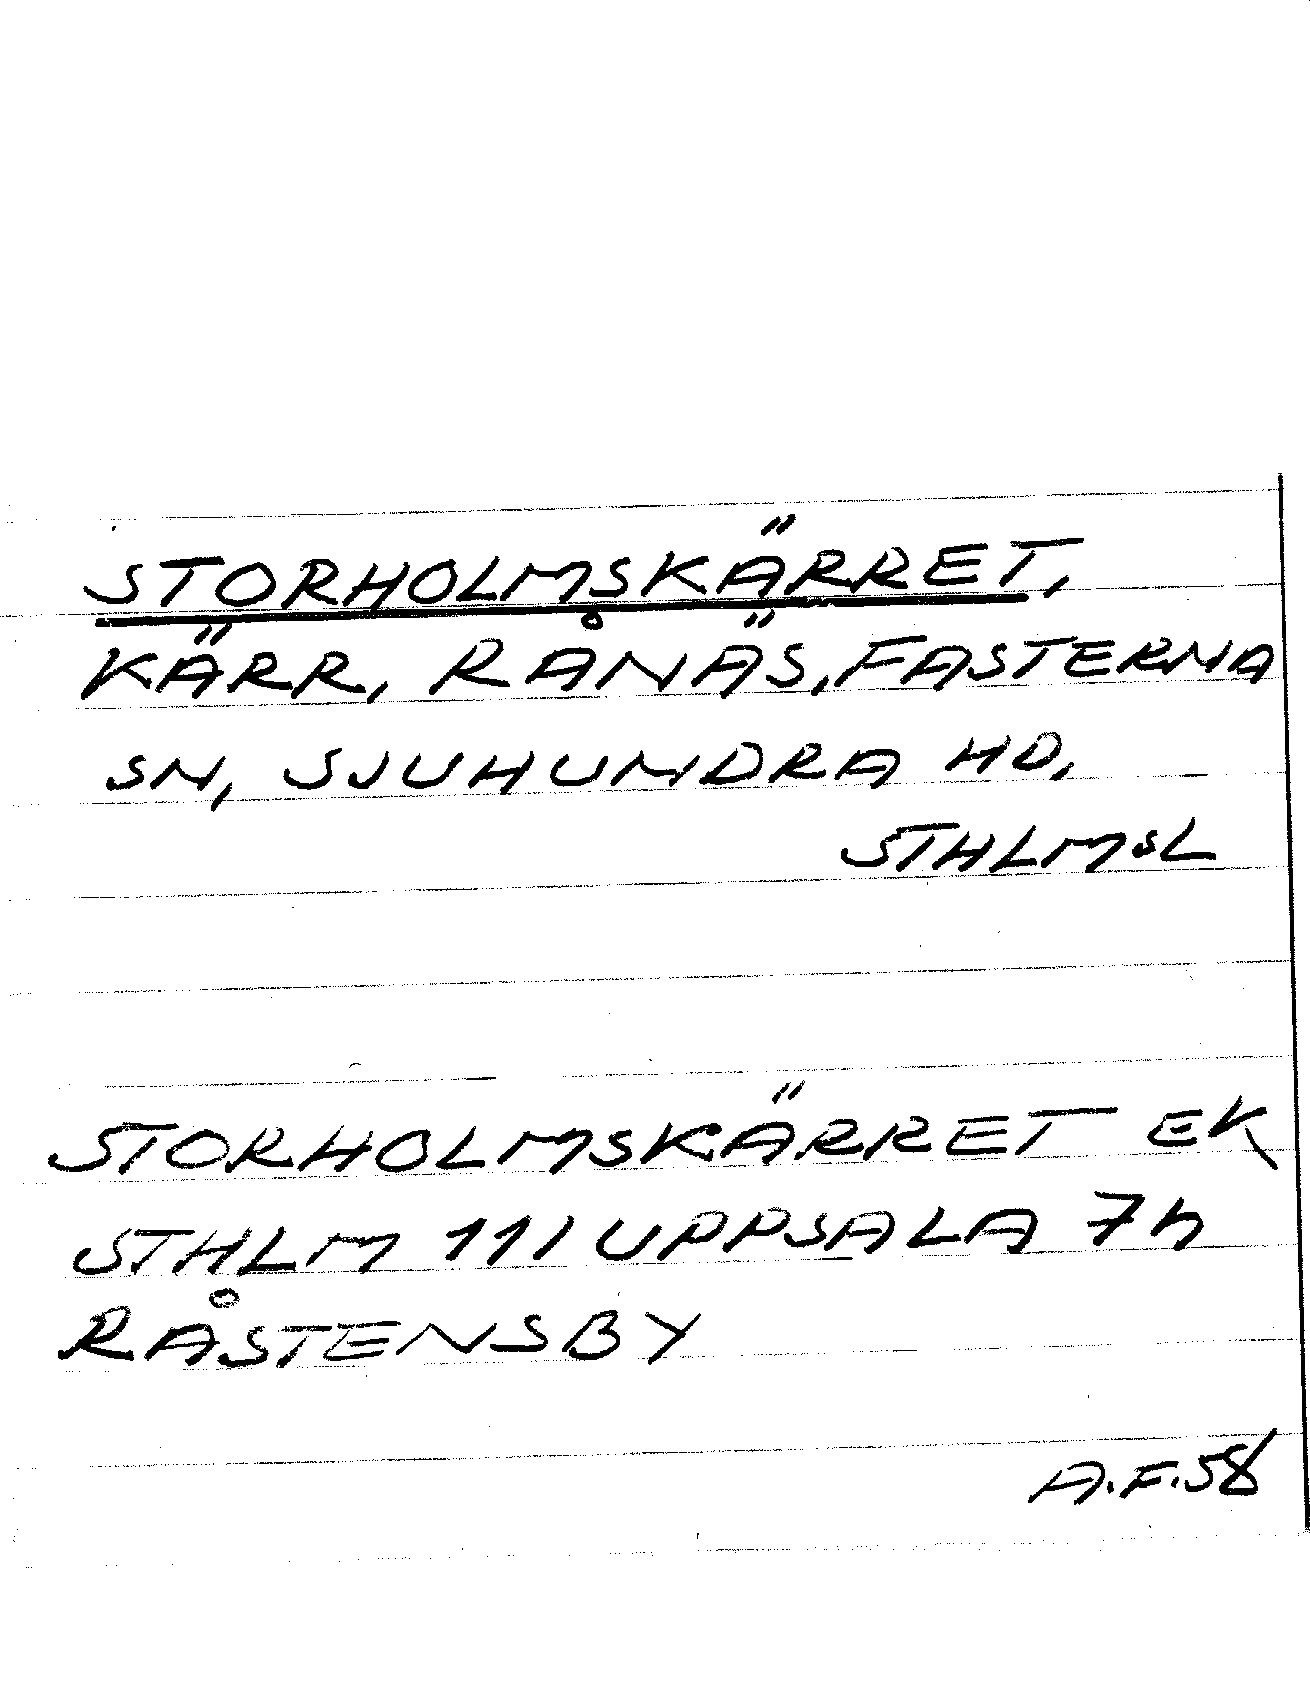 STORHOLMSKÄRRET,
KÄRR, RÅNÄS, FASTERNA
SN, SJUHUNDRA HD,
STHLMSL
STORHOLMSKÄRRET EK
STHLM 111 UPPSALA 7h
RÅSTENSBY
A.F.58